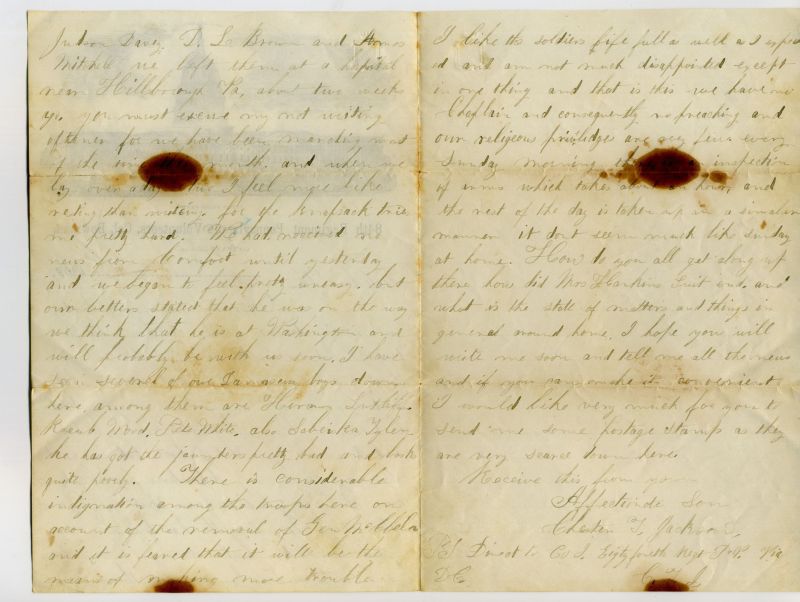 Judson Davey, D. La Brown and Thomas
Mitchel we left them at a hospital
near Hillborough Va, about two weeks
ago you must excuse my not writing
oftener for we have been marching most
of the time month. and when we
lay over a day I feel more like
resting than writing. for the knapsack tires
me pretty hard. We had received no
news from Comfort until yesterday
and we began to feel pretty uneasy. but
our letters stated that he was on the way
we think that he is at Washington and
will probably be with us soon. I have
seen several of our boys down
here, among them are Hermon
Wood. Pete White. also Tyler.
he has got the jaunders pretty bad and looks
quite poorly. There is considerable
indignation among the troops here on
account of the removal of Gen McClelan
and it is feared that it will be the
means of making more trouble
I like the soldiers life full as well as I expect
ed and am not much disappointed except
in one thing and that is this we have no
Chaplain and consequently no preaching and
our religeous priviledges are very few every
Sunday morning inspection
of arms which takes about an hour, and
the rest of the day is taken up in a simalar
manner it dont seem much like sunday
at home. How do you all get along up
there how did Mos Hankins suit end. and
what is the state of matters and things in
general around home. I hope you will
write me soon and tell me all the news
and if you can make it convenient
I would like very much for you to
send me some postage stamps as they
are very scarce down here.
Receive this from your
Affectionate Son
Chester F. Jackson,
P.S Direct to Co I, Eigtyfourth Regt P.V. Via
D.C.
C. F. J.